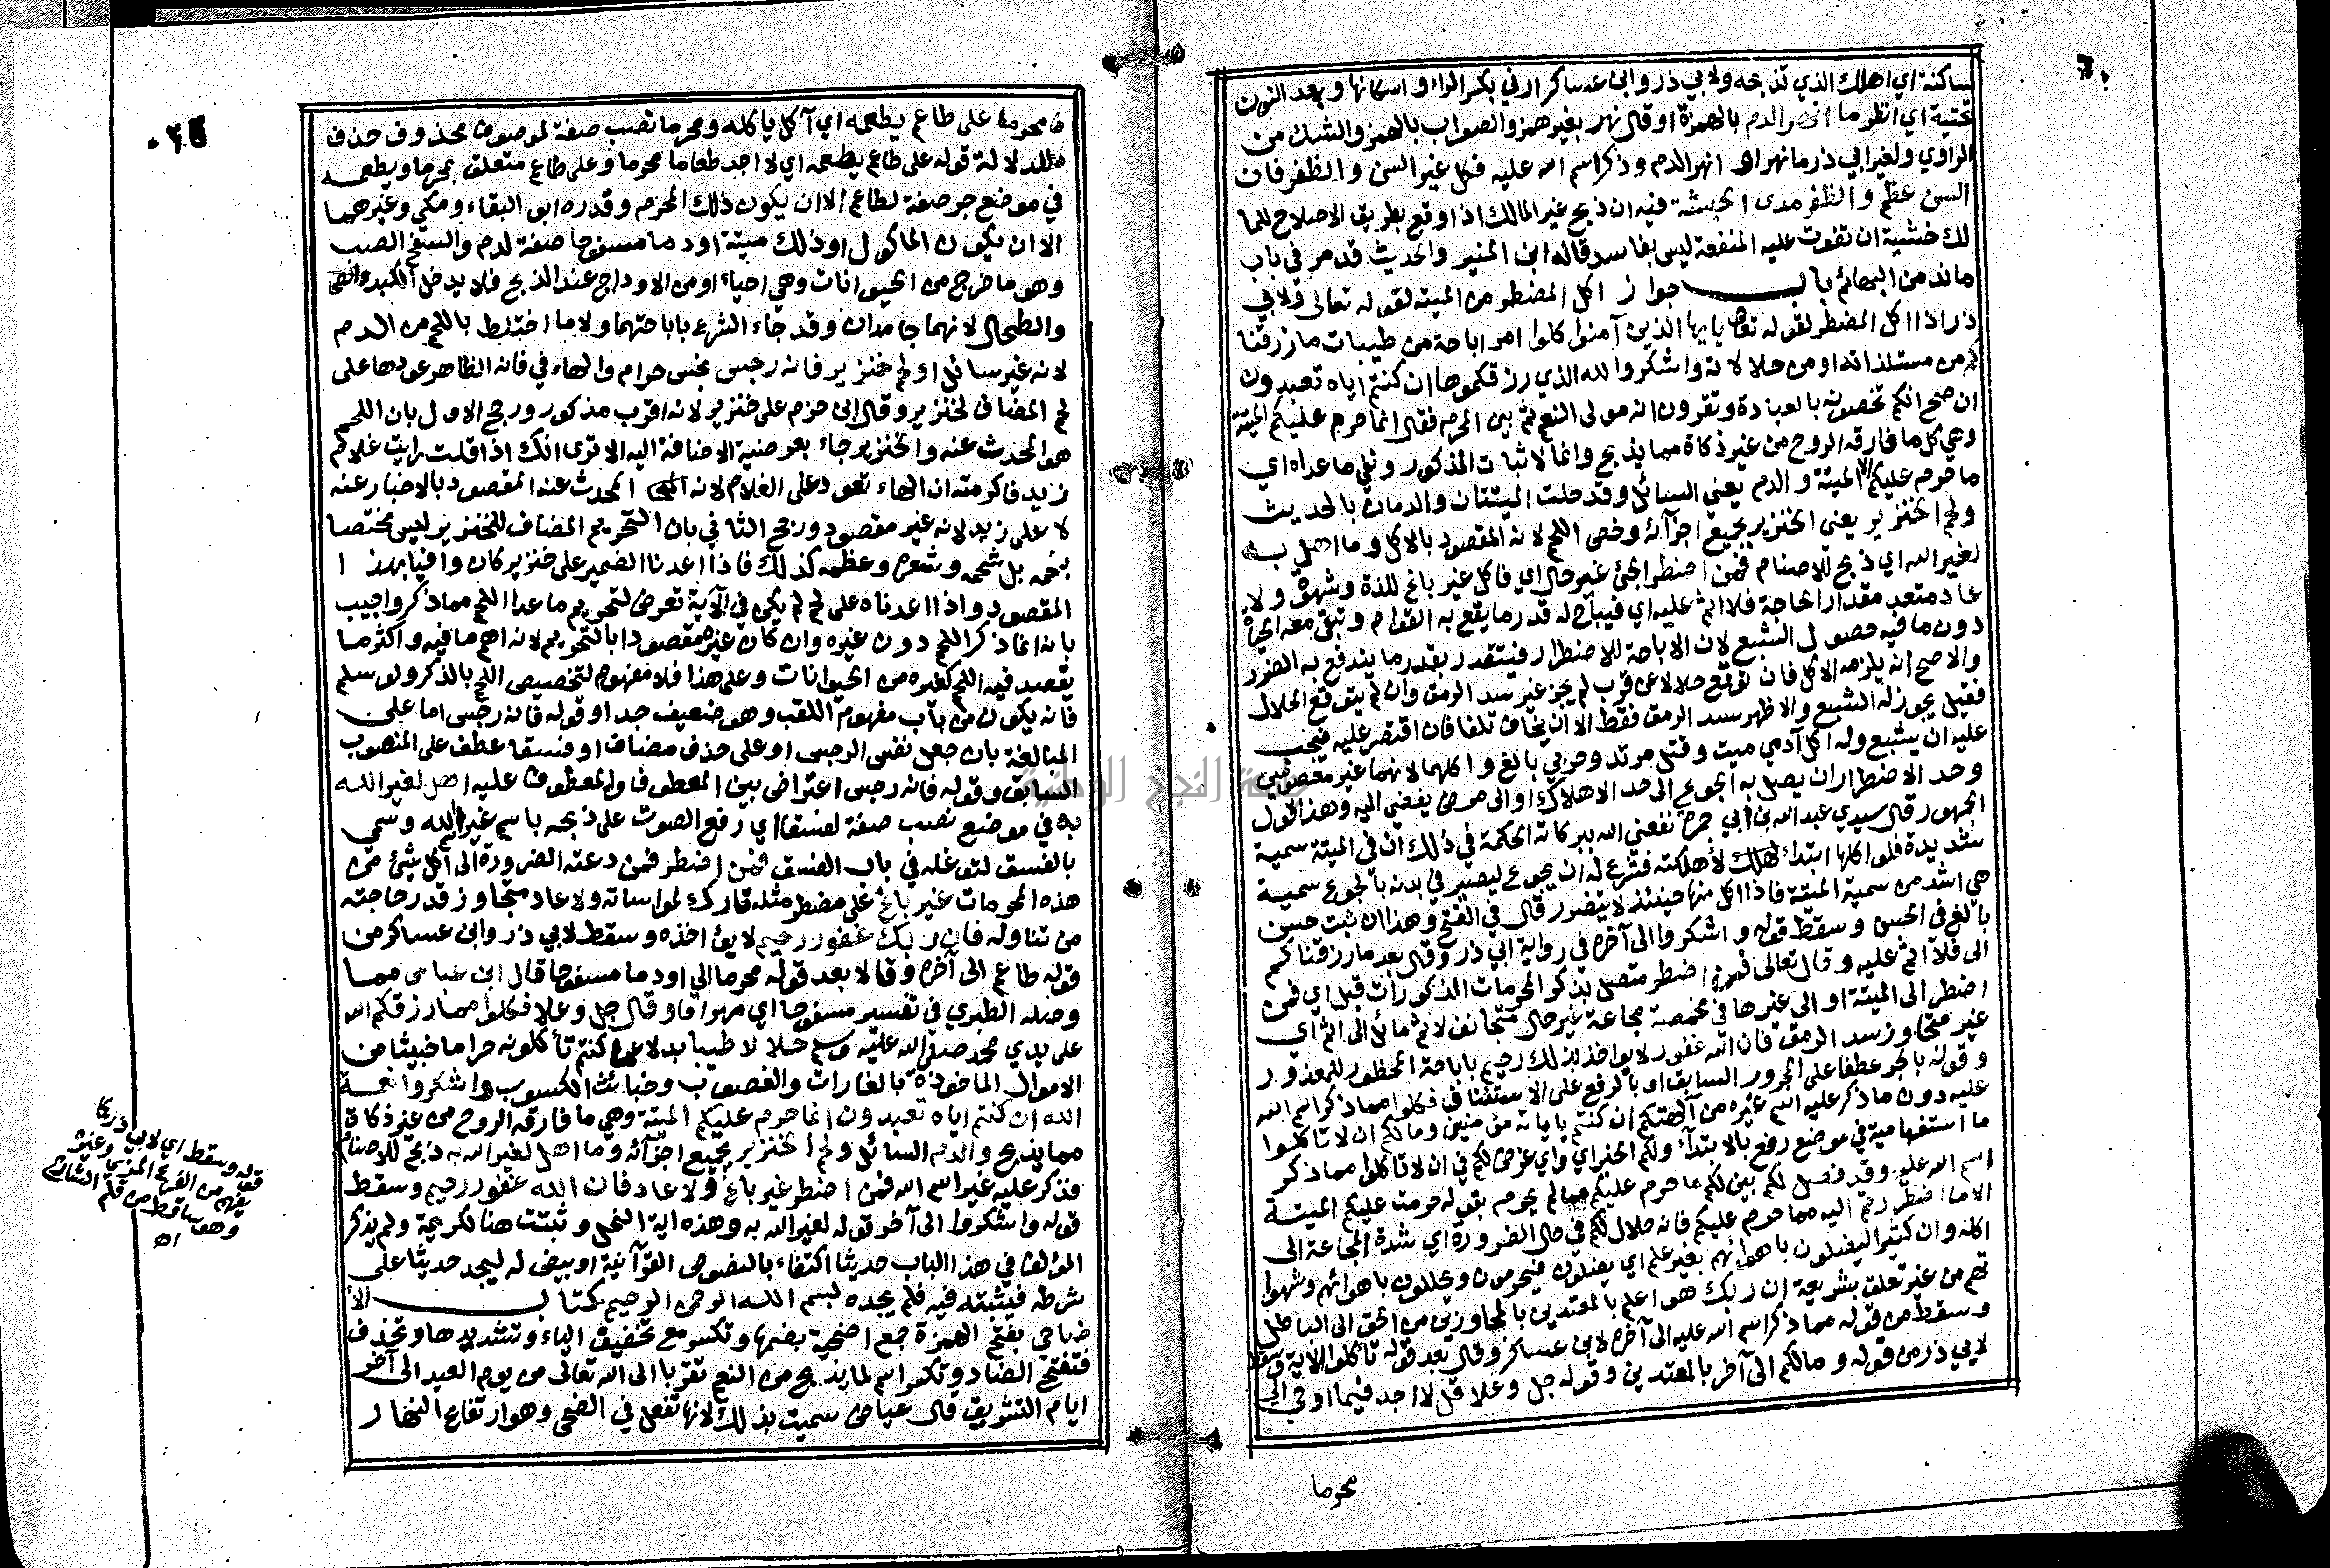 ساكنة اي اهلك الذي تذبحه ولابي ذر وابن عساكر ارني بكسر الراء واسكانها وبعد النون
تحتية اي انظر ما انهر الدم بالهمزة او قال نهر بغير همز والصواب بالهمز والشك من
الراوي ولغير ابي ذر ما نهر او انهر الدم وذكر اسم الله عليه فكل غير السن والظفر فان
السن عظم والظفر مدى الحبشة فيه ان ذبح غير المالك اذا وقع بطريق الاصلاح للما
لك خشية ان تفوت عليه المنفعة ليس بفاسد قاله ابن المنير والحديث قد مر في باب
ما ند من البهائم باب جواز اكل المضطر من الميتة لقوله تعالى ولابي
ذر اذا اكل المضطر لقوله تعالى يايها الذين آمنوا كلوا امر اباحة من طيبات ما رزقنا
كم من مستلذاته او من حلالاته واشكروا لله الذي رزقكموها ان كنتم اياه تعبدون
ان صح انكم تخصونه بالعبادة وتقرون انه مولى النعم ثم بين المحرم فقال انما حرم عليكم الميتة
وهي كل ما فارقه الروح من غير ذكاة مما يذبح وانما لاثبات المذكور ونفي ما عداه اي
ما حرم عليكم الا الميتة والدم يعني السائل وقد حلت الميتتان والدمان بالحديث
ولحم الخنزير يعني الخنزير بجميع اجزآئه وخص اللحم لانه المقصود بالاكل وما اهل به
لغير الله اي ذبح للاصنام فمن اضطر الجئ غير حال اي فاكل غير باغ للذة وشهوة ولا
عاد متعد مقدار الحاجة فلا اثم عليه اي فيباح له قدر ما يقع به القوام وتبقى معه الحياة
دون ما فيه حصول الشبع لان الاباحة للاضطرار فيتقدر بقدر ما يندفع به الضرر
والاصح انه يلزمه الاكل فان توقع حلالا عن قرب لم يجز غير سد الرمق وان لم يتوقع الحلال
فقيل يجوز له الشبع والاظهر سد الرمق فقط الا ان يخاف تلفا فان اقتصر عليه فيجب
عليه ان يشبع وله اكل آدمي ميت وقتل مرتد وحربي بالغ واكلهما لانهما غير معصومين
وحد الاضطرار ان يصل به الجوع الى حد الاهلاك او الى مرض يفضي اليه وهذا قول
الجمهور قال سيدي عبد الله بن ابي جمرة نفعني الله ببركاته الحكمة في ذلك ان في الميتة سمية
شديدة فلو اكلها ابتداء لاهلكته فشرع له ان يجوع ليصير في بدنه بالجوع سمية
هي اشد من سمية الميتة فاذا اكل منها حينئذ لا يتضرر قال في الفتح وهذا ان ثبت حسن
بالغ في الحسن وسقط قوله واشكروا الى آخره في رواية ابي ذر وقال بعد ما رزقناكم
الى فلا اثم عليه وقال تعالى فمن اضطر متصل بذكر المحرمات المذكورات قبل اي فمن
اضطر الى الميتة او الى غيرها في مخمصة مجاعة غير حال متجانف لاثم مائل الى اثم اي
غير متجاوز سد الرمق فان الله غفور لا يواخذ بذلك رحيم باباحة المحظور للمعذور
وقوله بالجر عطفا على المجرور السابق او بالرفع على الاستئناف فكلوا مما ذكر اسم الله
عليه دون ما ذكر عليه اسم غيره من آلهتكم ان كنتم باياته مؤمنين وما لكم ان لا تاكلوا
ما استفهامية في موضع رفع بالابتدآء ولكم الخبر اي واي غرض لكم في ان لا تاكلوا مما ذكر
اسم الله عليه وقد فصل لكم بين لكم ما حرم عليكم مما لم يحرم بقوله حرمت عليكم الميتة
الا ما اضطررتم اليه مما حرم عليكم فانه حلال لكم في حال الضرورة اي شدة المجاعة الى
اكله وان كثيرا ليضلون باهوائهم بغير علم اي يضلون فيحرمون ويحللون باهوائهم وشهوا
تهم من غير تعلق بشريعة ان ربك هو اعلم بالمعتدين بالمجاوزين من الحق الى الباطل
وسقط من قوله مما ذكر اسم الله عليه الى آخره لابن عساكر وقال بعد قوله تاكلوا الاية وسقط
لابي ذر من قوله وما لكم الى آخر بالمعتدين وقوله جل وعلا قل لا اجد فيما اوحي الي
محرما
محرما على طاعم يطعمه اي آكل ياكله ومحرما نصب صفة لموصوف محذوف حذف
لدلالة قوله على طاعم يطعمه اي لا اجد طعاما محرما وعلى طاعم متعلق بمحرما ويطعمه
في موضع جر صفة لطاعم الا ان يكون ذلك المحرم وقدره ابو البقاء ومكي وغيرهما
الا ان يكون الماكول او ذلك ميتة او دما مسفوحا صفة لدم والسفح الصب
وهو ما خرج من الحيوانات وهي احياء او من الاوداج عند الذبح فلا يدخل الكبد
والطحال لانهما جامدان وقد جاء الشرع باباحتهما ولا ما اختلط باللحم من الدم
لانه غير سائل او لحم خنزير فانه رجس نجس حرام والهاء في فانه الظاهر عودها على
لحم المضاف لخنزير وقال ابن حزم على خنزير لانه اقرب مذكور ورجح الاول بان اللحم
هو المحدث عنه والخنزير جاء بعرضية الاضافة اليه الا ترى انك اذا قلت رايت غلام
زيد فاكرمته ان الهاء تعود على الغلام لانه المحدث عنه المقصود بالاخبار عنه
لا على زيد لانه غير مقصود ورجح الثاني بان التحريم المضاف للخنزير ليس مختصا
بلحمه بل شحمه وشعره وعظمه كذلك فاذا اعدنا الضمير على خنزير كان وافيا بهذا
المقصود واذا اعدناه على لحم لم يكن في الآية تعرض لتحريم ما عدا اللحم مما ذكر واجيب
بانه انما ذكر اللحم دون غيره وان كان غيره مقصودا بالتحريم لانه اهم ما فيه واكثر ما
يقصد فيه اللحم كغيره من الحيوانات وعلى هذا فلا مفهوم لتخصيص اللحم بالذكر ولو سلم
فانه يكون من باب مفهوم اللقب وهو ضعيف جدا وقوله فانه رجس اما على
المبالغة بان جعل نفس الرجس او على حذف مضاف او فسقا عطف على المنصوب
السابق وقوله فانه رجس اعتراض بين المعطوف والمعطوف عليه اهل لغير الله
به في موضع نصب صفة لفسقا اي رفع الصوت على ذبحه باسم غير الله وسمي
بالفسق لتوغله في باب الفسق فمن اضطر فمن دعته الضرورة الى اكل شئ من
هذه المحرمات غير باغ على مضطر مثله تارك لمواساته ولا عاد متجاوز قدر حاجته
من تناوله فان ربك غفور رحيم لا يؤاخذه وسقط لابي ذر وابن عساكر من
قوله طاعم الى آخره وقالا بعد قوله محرما الى او دما مسفوحا قال ابن عباس مما
وصله الطبري في تفسير مسفوحا اي مهراقا وقال جل وعلا فكلوا مما رزقكم الله
على يدي محمد صلى الله عليه وسلم حلالا طيبا بدلا عما كنتم تأكلونه حراما خبيثا من
الاموال الماخوذة بالغارات والغصوب وخبائث الكسوب واشكروا نعمة
الله ان كنتم اياه تعبدون انما حرم عليكم الميتة وهي ما فارقه الروح من غير ذكاة
مما يذبح والدم السائل ولحم الخنزير بجميع اجزآئه وما اهل لغير الله به ذبح للاصنام
فذكر عليه غير اسم الله فمن اضطر غير باغ ولا عاد فان الله غفور رحيم وسقط
قوله واشكروا الى آخر قوله لغير الله به وهذه اية النحل وثبتت هنا لكريمة ولم يذكر
المؤلف في هذا الباب حديثا اكتفاء بالنصوص القرآنية او بيض له ليجد حديثا على
شرطه فيثبته فيه فلم يجده بسم الله الرحمن الرحيم كتاب الأ
ضاحي بفتح الهمزة جمع اضحية بضمها وتكسر مع تخفيف الياء وتشديدها وتحذف
فتفتح الضاد وتكسر اسم لما يذبح من النعم تقربا الى الله تعالى من يوم العيد الى آخر
ايام التشريق قال عياض سميت بذلك لانها تفعل في الضحى وهو ارتفاع النهار
قوله وسقط اي لابي ذر كما
يفهم من الفرع المزي وغيره
وهو ساقط من قلم الشارح
اه